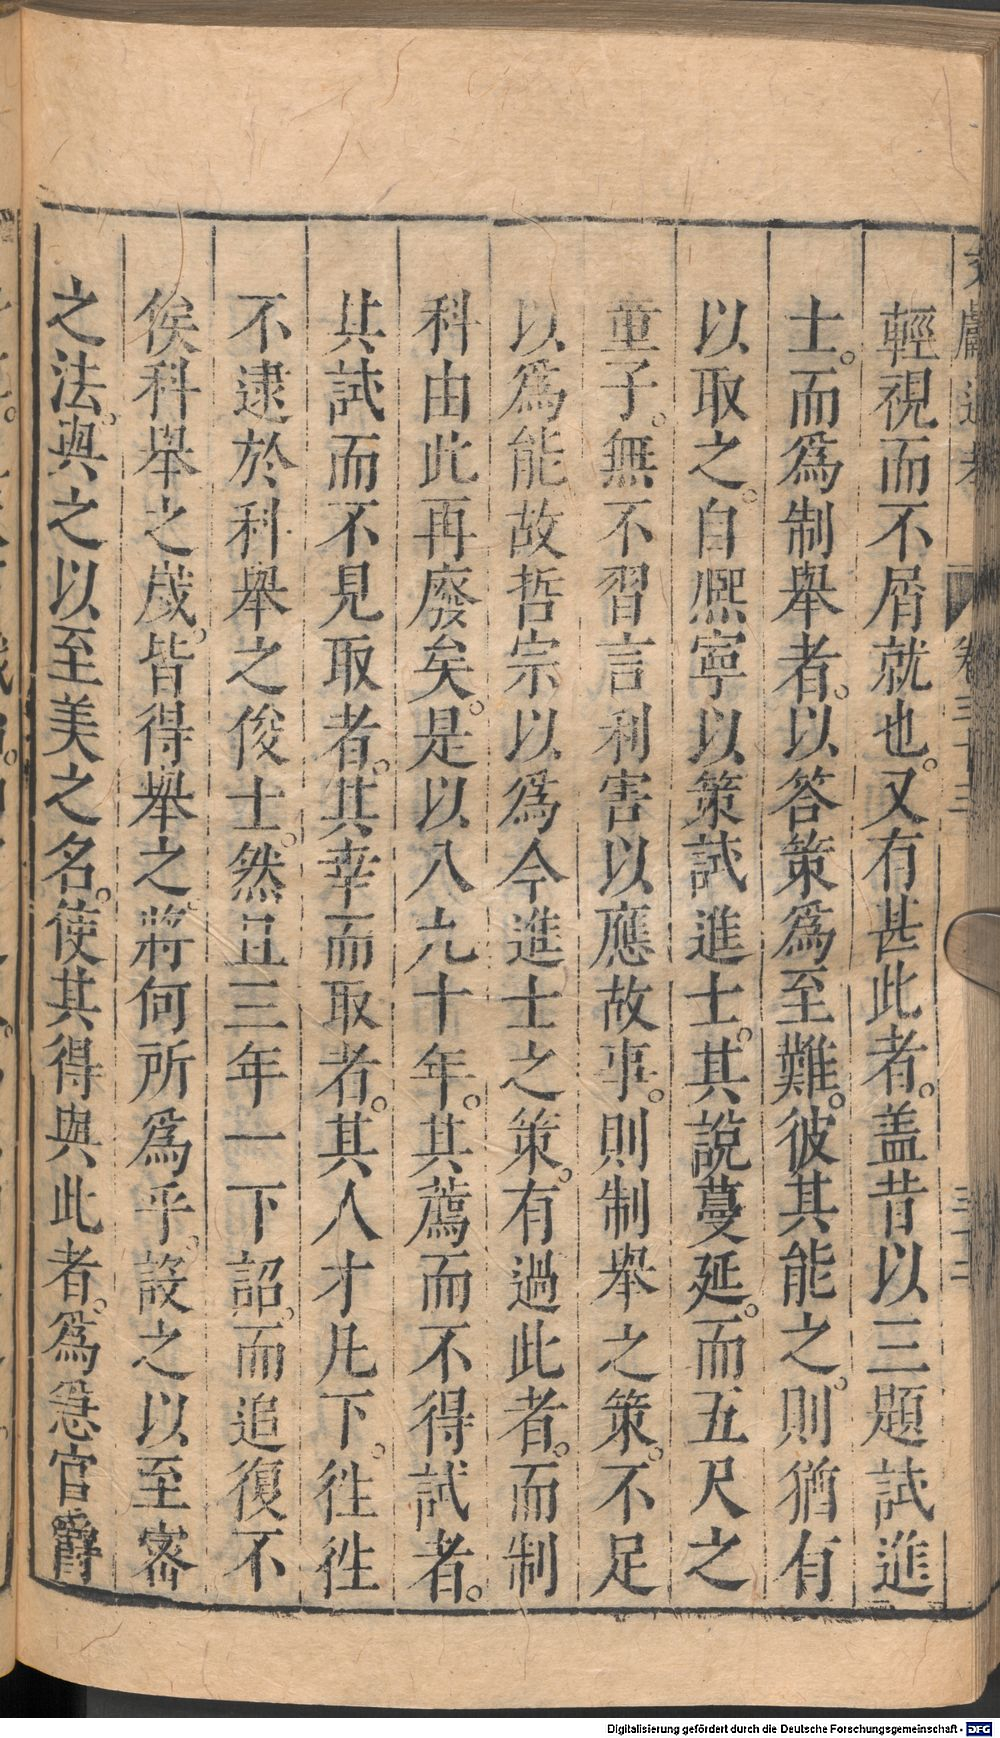 文獻通考 卷三十三 三十二
輕視而不屑就也。又有甚此者。盖昔以三題試進
士。而爲制舉者。以答策爲至難。彼其能之。則猶有
以取之。自熈寧以策試進士。其說蔓延。而五尺之
童子。無不習言利害以應故事。則制舉之策。不足
以爲能故哲宗以爲今進士之策。有過此者。而制
科由此再廢矣。是以八九十年。其薦而不得試者。
其試而不見取者。其幸而取者。其人才凡下。徃徃
不逮於科舉之俊士。然且三年一下詔。而追復不
俟科舉之歲。皆得舉之。將何所爲乎。設之以至密
之法。與之以至美之名。使其得與此者。爲急官爵
Digitalisierung gefördert durch die Deutsche Forschungsgemeinschaft - DFG